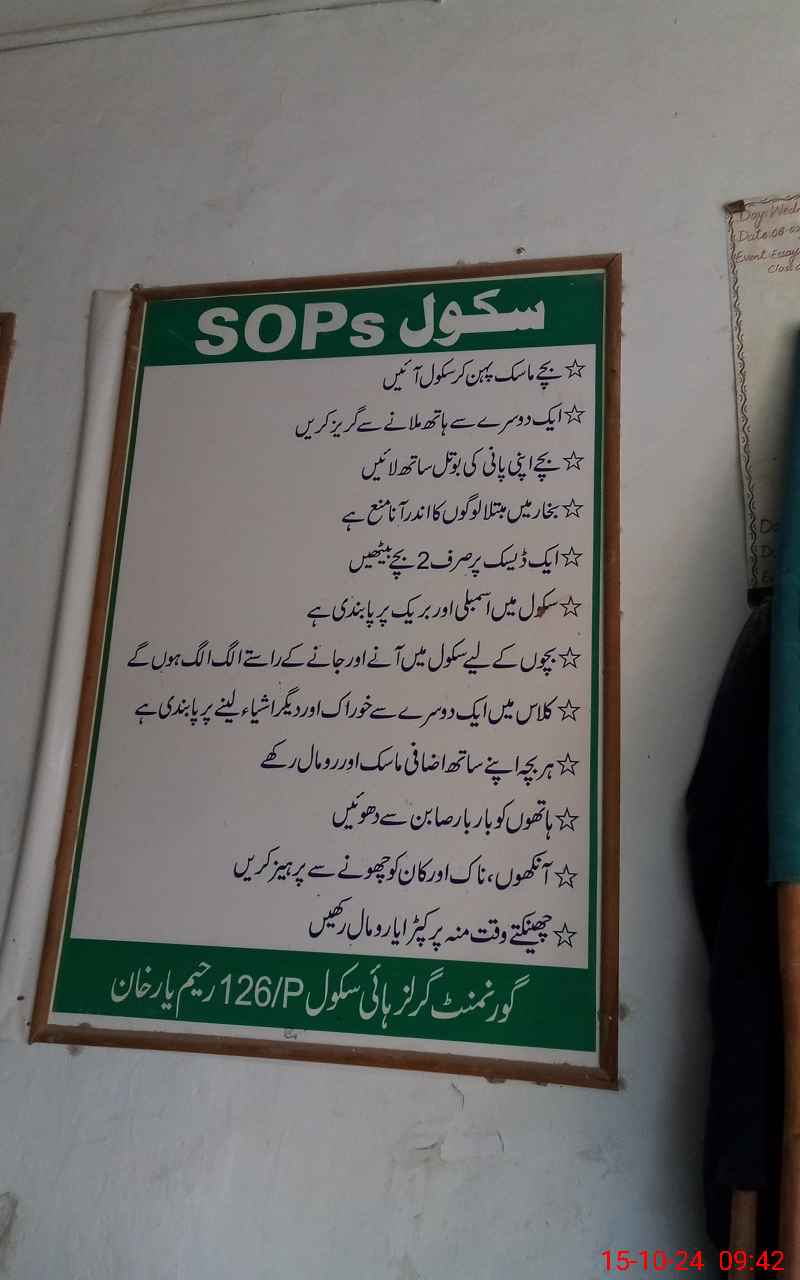 سکول SOPs
☆ بچے ماسک پہن کر سکول آئیں
☆ ایک دوسرے سے ہاتھ ملانے سے گریز کریں
☆ بچے اپنی پانی کی بوتل ساتھ لائیں
☆ بخار میں مبتلا لوگوں کا اندر آنا منع ہے
☆ ایک ڈیسک پر صرف 2 بچے بیٹھیں
☆ سکول میں اسمبلی اور بریک پر پابندی ہے
☆ بچوں کے لیے سکول میں آنے اور جانے کے راستے الگ الگ ہوں گے
☆ کلاس میں ایک دوسرے سے خوراک اور دیگر اشیاء لینے پر پابندی ہے
☆ ہر بچہ اپنے ساتھ اضافی ماسک اور رومال رکھے
☆ ہاتھوں کو بار بار صابن سے دھوئیں
☆ آنکھوں، ناک اور کان کو چھونے سے پرہیز کریں
☆ چھینکتے وقت منہ پر کپڑا یا رومال رکھیں
گورنمنٹ گرلز ہائی سکول 126/P رحیم یار خان
Day: Wed
Date: 08-0
Event: Essay
Class
15-10-24 09:42